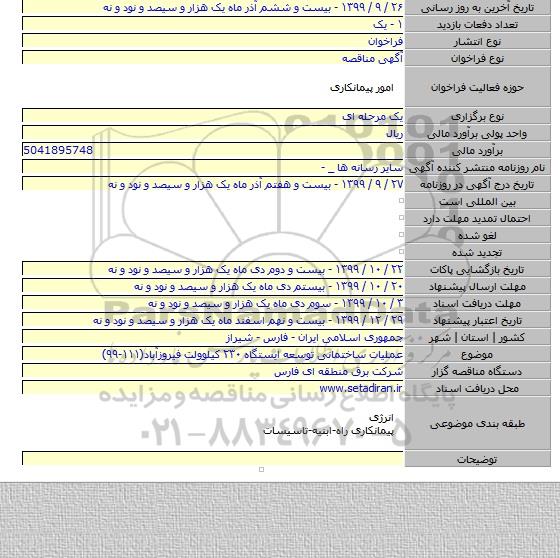 تاریخ آخرین به روز رسانی ۲۶ / ۹ / ۱۳۹۹ - بیست و ششم آذر ماه یک هزار و سیصد و نود و نه
تعداد دفعات بازدید ۱ - یک
نوع انتشار فراخوان
نوع فراخوان آگهی مناقصه
حوزه فعالیت فراخوان امور پیمانکاری
نوع برگزاری یک مرحله ای
واحد پولی برآورد مالی ریال
برآورد مالی 5041895748
نام روزنامه منتشر کننده آگهی سایر رسانه ها _ -
تاریخ درج آگهی در روزنامه ۲۷ / ۹ / ۱۳۹۹ - بیست و هفتم آذر ماه یک هزار و سیصد و نود و نه
بین المللی است
احتمال تمدید مهلت دارد
لغو شده
تجدید شده
تاریخ بازگشایی پاکات ۲۲ / ۱۰ / ۱۳۹۹ - بیست و دوم دی ماه یک هزار و سیصد و نود و نه
مهلت ارسال پیشنهاد ۲۰ / ۱۰ / ۱۳۹۹ - بیستم دی ماه یک هزار و سیصد و نود و نه
مهلت دریافت اسناد ۳ / ۱۰ / ۱۳۹۹ - سوم دی ماه یک هزار و سیصد و نود و نه
تاریخ اعتبار پیشنهاد ۲۹ / ۱۲ / ۱۳۹۹ - بیست و نهم اسفند ماه یک هزار و سیصد و نود و نه
کشور | استان | شهر جمهوری اسلامی ایران - فارس - شیراز
موضوع عملیات ساختمانی توسعه ایستگاه ۲۳۰ کیلوولت فیروزآباد(۱۱۱-۹۹)
دستگاه مناقصه گزار شرکت برق منطقه ای فارس
محل دریافت اسناد www.setadiran.ir
طبقه بندی موضوعی انرژی
پیمانکاری راه-ابنیه-تاسیسات
توضیحات
ParsNamadData
پایگاه اطلاع رسانی مناقصه و مزایده
۰۲۱-۸۸۳۴۹۶۷۰-۵